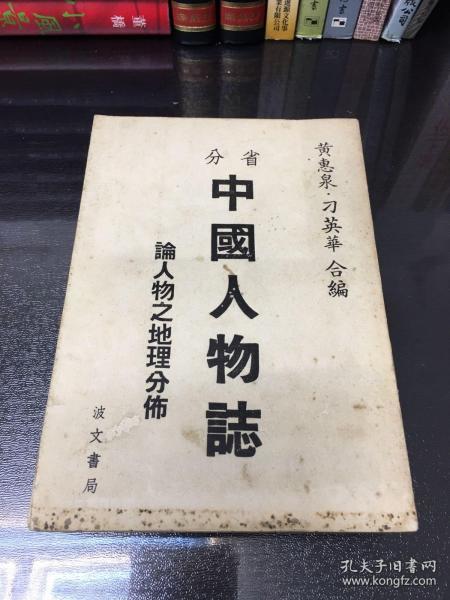 黃惠泉·刁英華 合編
分省
中國人物誌
論人物之地理分佈
波文書局
董橋
小風景
孔夫子旧书网
www.kongfz.com